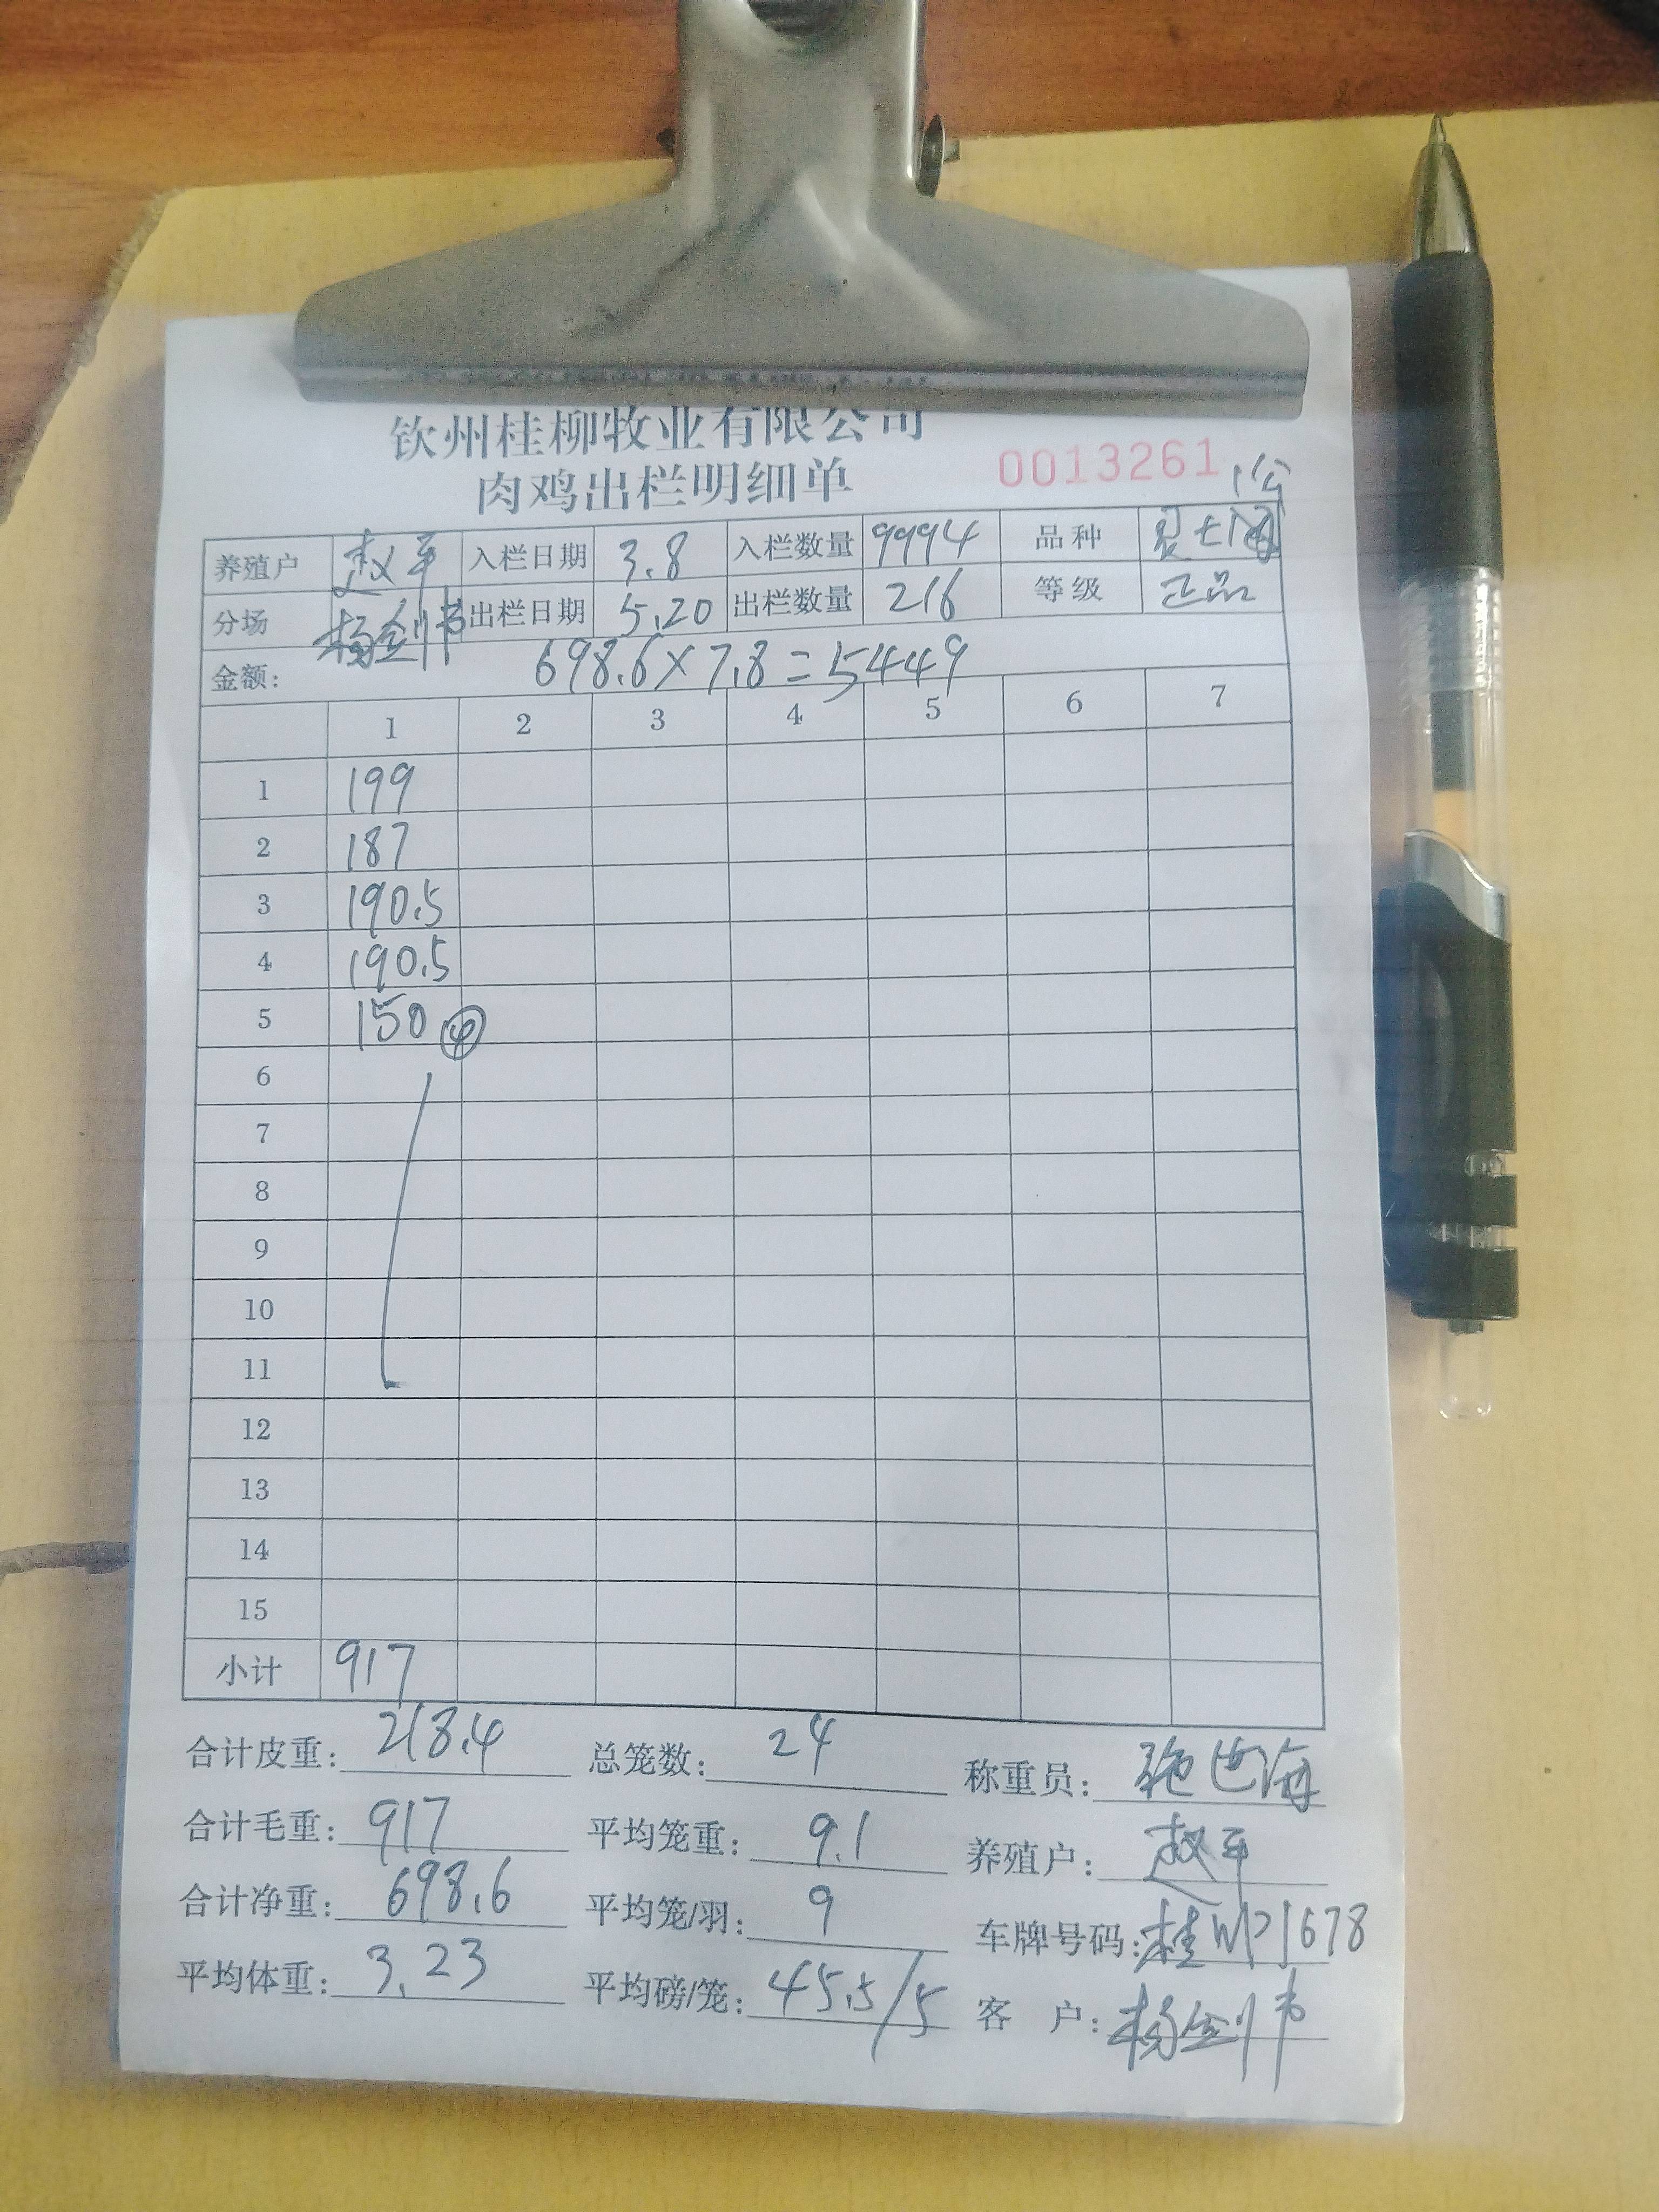 钦州桂柳牧业有限公司
肉鸡出栏明细单 0013261
养殖户 赵平 入栏日期 3.8 入栏数量 9994 品种
分场 杨剑书 出栏日期 5.20 出栏数量 216 等级 正品
金额: 698.6×7.8=5449
1 2 3 4 5 6 7
1 199
2 187
3 190.5
4 190.5
5 150 ④
6
7
8
9
10
11
12
13
14
15
小计 917
合计皮重: 218.4 总笼数: 24 称重员: 施世海
合计毛重: 917 平均笼重: 9.1 养殖户: 赵平
合计净重: 698.6 平均笼/羽: 9 车牌号码:
平均体重: 3.23 平均磅/笼: 45.5/5 客户: 杨剑书